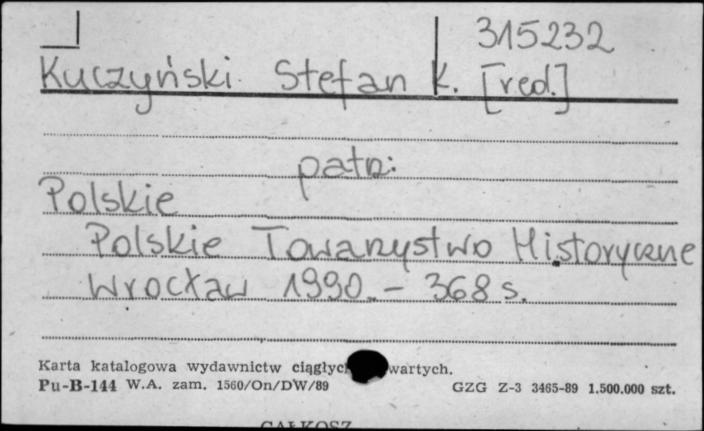 315232
Kuczyński Stefan K. [red.]
patrz:
Polskie
Polskie Towarzystwo Historyczne
Wrocław 1990. - 368 s.
Karta katalogowa wydawnictw wartych.
Pu-B-144 W.A. zam. 1560/On/DW/89 GZG Z-3 3465-89 1.500.000 szt.